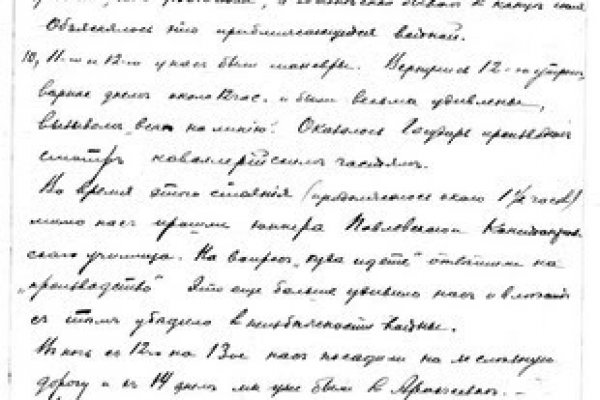 Объяснялось это приближающейся войной.
10, 11-го и 12-го у нас были маневры. Вернулись 12-го утром,
вернее днем около 12 час. и были весьма удивлены,
вызывом „всех на линию“. Оказалось Государь производил
смотр кавалерийским частям.
Во время этого стояния (продолжалось около 1½ часов)
мимо нас прошли юнкера Павловского
ского училища. На вопрос „куда идете“ ответили на
„производство“ Это еще больше удивило нас и
с тем убедило в неизбежности войны.
В ночь с 12-го на 13-ое нас посадили на железную
дорогу и в 14 днем мы уже были в